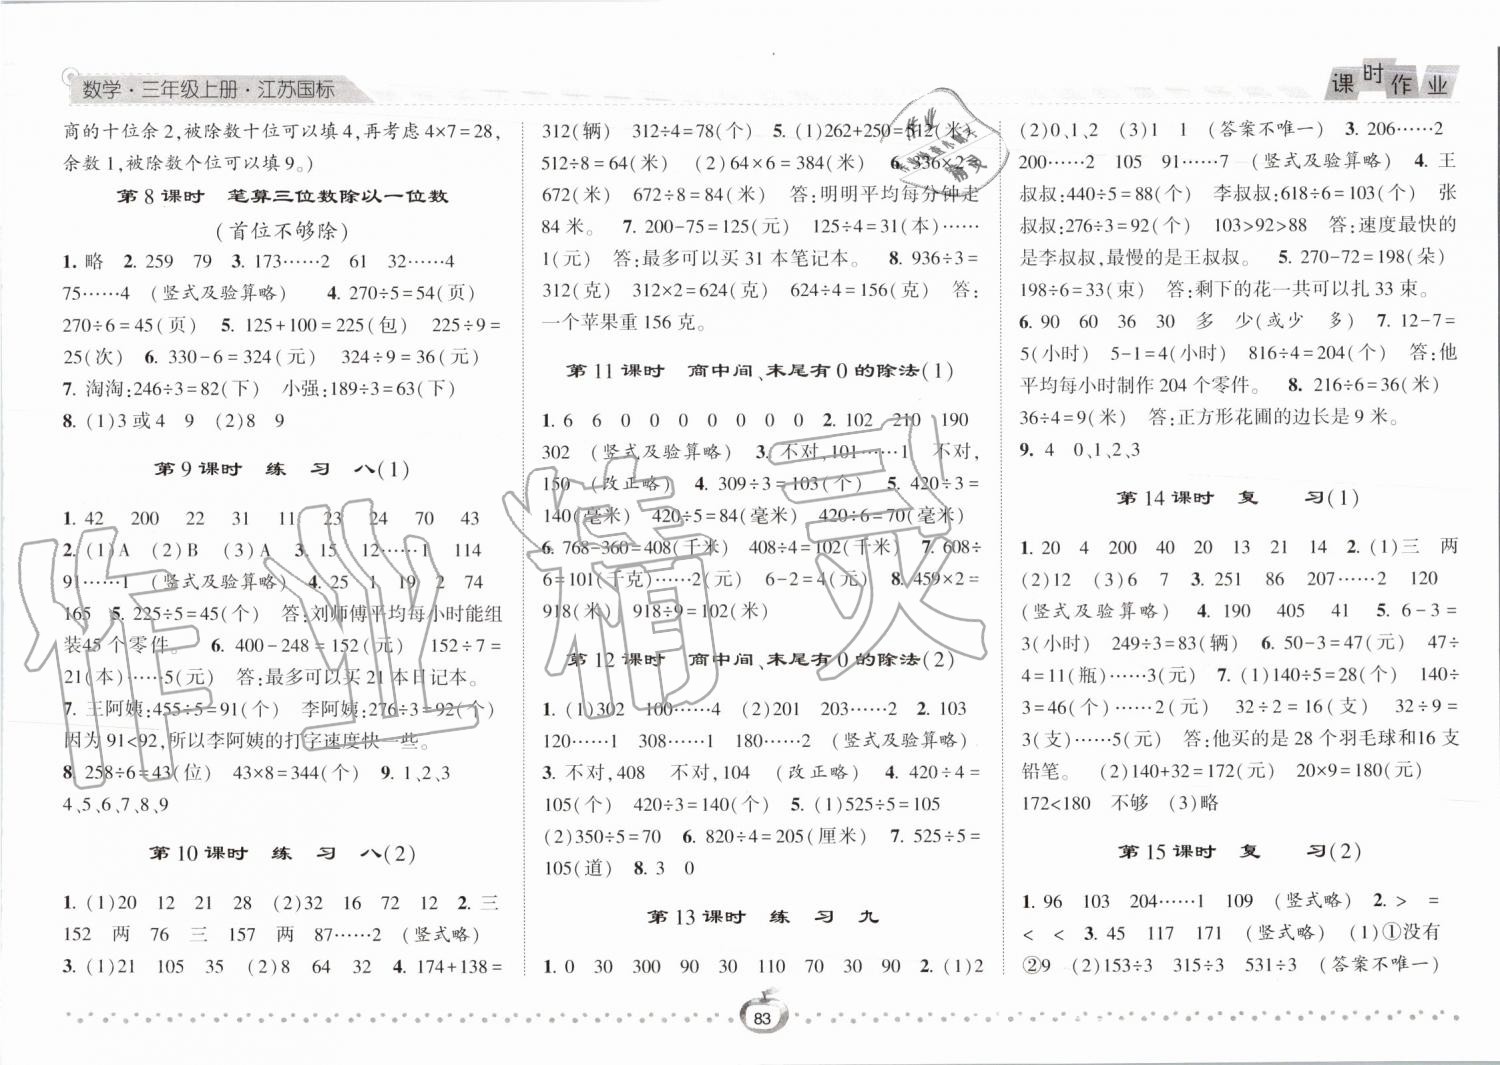 数学·三年级上册·江苏国标
课时作业
商的十位余2,被除数十位可以填4,再考虑4×7=28,
余数1,被除数个位可以填9。)
第8课时 笔算三位数除以一位数
(首位不够除)
1. 略 2. 259 79 3. 173……2 61 32……4
75……4 (竖式及验算略) 4. 270÷5=54(页)
270÷6=45(页) 5. 125+100=225(包) 225÷9=
25(次) 6. 330-6=324(元) 324÷9=36(元)
7. 淘淘:246÷3=82(下) 小强:189÷3=63(下)
8. (1)3或4 9 (2)8 9
第9课时 练 习 八(1)
1. 42 200 22 31 11 23 24 70 43
2. (1)A (2)B (3)A 3. 15 12……1 114
91……1 (竖式及验算略) 4. 25 1 19 2 74
165 5. 225÷5=45(个) 答:刘师傅平均每小时能组
装45个零件。 6. 400-248=152(元) 152÷7=
21(本)……5(元) 答:最多可以买21本日记本。
7. 王阿姨:455÷5=91(个) 李阿姨:276÷3=92(个)
因为91<92,所以李阿姨的打字速度快一些。
8. 258÷6=43(位) 43×8=344(个) 9. 1、2、3
4、5、6、7、8、9
第10课时 练 习 八(2)
1. (1)20 12 21 28 (2)32 16 72 12 2. 三
152 两 76 三 157 两 87……2 (竖式略)
3. (1)21 105 35 (2)8 64 32 4. 174+138=
312(辆) 312÷4=78(个) 5. (1)262+250=512(米)
512÷8=64(米) (2)64×6=384(米) 6. 336×2=
672(米) 672÷8=84(米) 答:明明平均每分钟走
84米。 7. 200-75=125(元) 125÷4=31(本)……
1(元) 答:最多可以买31本笔记本。 8. 936÷3=
312(克) 312×2=624(克) 624÷4=156(克) 答:
一个苹果重156克。
第11课时 商中间、末尾有0的除法(1)
1. 6 6 0 0 0 0 0 0 0 2. 102 210 190
302 (竖式及验算略) 3. 不对,101……1 不对,
150 (改正略) 4. 309÷3=103(个) 5. 420÷3=
140(毫米) 420÷5=84(毫米) 420÷6=70(毫米)
6. 768-360=408(千米) 408÷4=102(千米) 7. 608÷
6=101(千克)……2(元) 6-2=4(元) 8. 459×2=
918(米) 918÷9=102(米)
第12课时 商中间、末尾有0的除法(2)
1. (1)302 100……4 (2)201 203……2 2. 103
120……1 308……1 180……2 (竖式及验算略)
3. 不对,408 不对,104 (改正略) 4. 420÷4=
105(个) 420÷3=140(个) 5. (1)525÷5=105
(2)350÷5=70 6. 820÷4=205(厘米) 7. 525÷5=
105(道) 8. 3 0
第13课时 练 习 九
1. 0 30 300 90 30 110 70 30 90 2. (1)2
(2)0、1、2 (3)1 1 (答案不唯一) 3. 206……2
200……2 105 91……7 (竖式及验算略) 4. 王
叔叔:440÷5=88(个) 李叔叔:618÷6=103(个) 张
叔叔:276÷3=92(个) 103>92>88 答:速度最快的
是李叔叔,最慢的是王叔叔。 5. 270-72=198(朵)
198÷6=33(束) 答:剩下的花一共可以扎33束。
6. 90 60 36 30 多 少(或少 多) 7. 12-7=
5(小时) 5-1=4(小时) 816÷4=204(个) 答:他
平均每小时制作204个零件。 8. 216÷6=36(米)
36÷4=9(米) 答:正方形花圃的边长是9米。
9. 4 0、1、2、3
第14课时 复 习(1)
1. 20 4 200 40 20 13 21 14 2. (1)三 两
(2)12 (3)6 7 3. 251 86 207……2 120
(竖式及验算略) 4. 190 405 41 5. 6-3=
3(小时) 249÷3=83(辆) 6. 50-3=47(元) 47÷
4=11(瓶)……3(元) 7. (1)140÷5=28(个) 140÷
3=46(个)……2(元) 32÷2=16(支) 32÷9=
3(支)……5(元) 答:他买的是28个羽毛球和16支
铅笔。 (2)140+32=172(元) 20×9=180(元)
172<180 不够 (3)略
第15课时 复 习(2)
1. 96 103 204……1 109 (竖式及验算略) 2. > =
< < 3. 45 117 171 (竖式略) (1)①没有
②9 (2)153÷3 315÷3 531÷3 (答案不唯一)
83
作业精灵